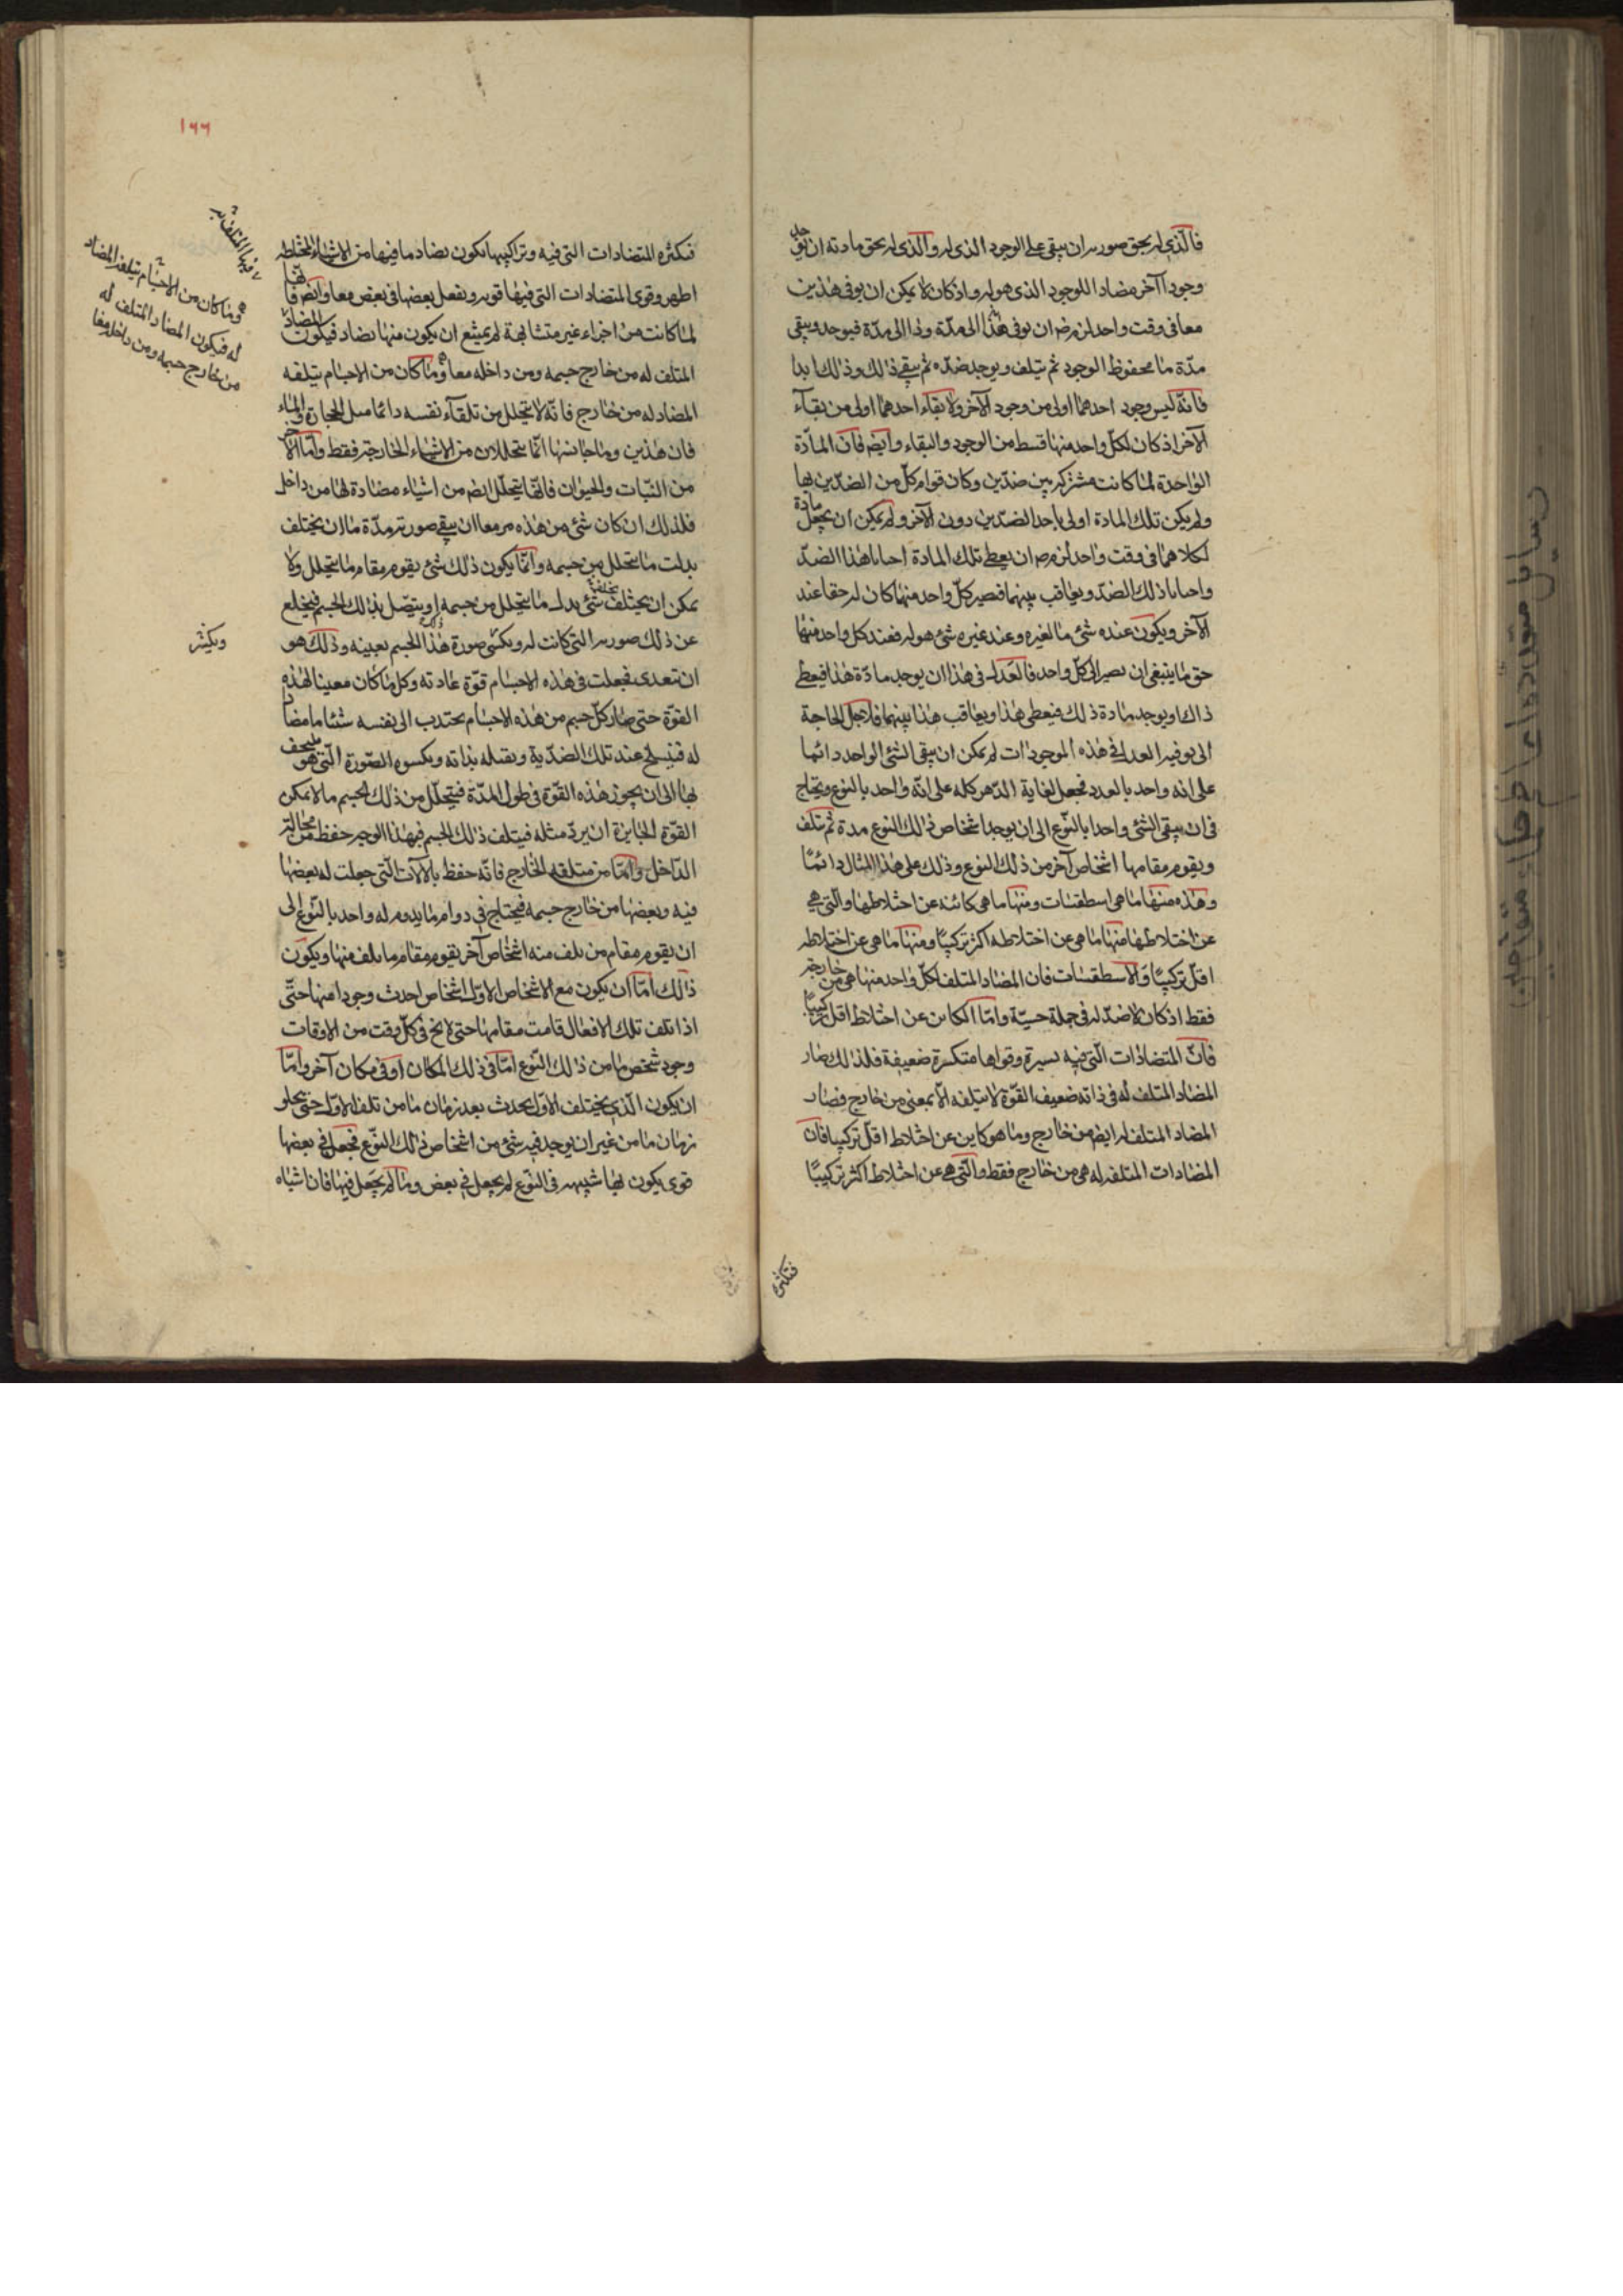 فالذي له بحق صورته ان يبقى على الوجود الذي له والذي له بحق مادته ان يوجد
وجودا آخر مضادا للوجود الذي هو له واذ كان لا يمكن ان يوفى هذين
معا فى وقت واحد لزم ضرورة ان يوفى هذا الى مدّة وذا الى مدّة فيوجد ويبقى
مدّة ما محفوظ الوجود ثم يتلف ويوجد ضدّه ثم يبقى ذلك وذلك ابدا
فانّه ليس وجود احدهما اولى من وجود الآخر ولا بقاء احدهما اولى من بقآء
الآخر اذ كان لكلّ واحد منهما قسط من الوجود والبقاء وايض فان المادّة
الواحدة لما كانت مشتركة بين ضدّين وكان قوام كلّ من الضدّين بها
ولم يكن تلك المادة اولى باحد الضدّين دون الآخر ولم يمكن ان يجعل مادة
لكلاهما فى وقت واحد لزم ضرورة ان يعطى تلك المادة احيانا هذا الضدّ
واحيانا ذلك الضدّ ويعاقب بينهما فيصير كلّ واحد منهما كان له حقا عند
الآخر ويكون عنده شئ ما لغيره وعند غيره شئ هو له فعند كل واحد منهما
حق ما ينبغى ان يصير الى كلّ واحد فالعدل فى هذا ان يوجد مادّة هذا فيعطى
ذاك او يوجد مادة ذلك فيعطى هذا ويعاقب هذا بينهما فلاجل الحاجة
الى توفير العدل فى هذه الموجودات لم يمكن ان يبقى الشئ الواحد دائما
على انه واحد بالعدد فجعل لغاية الدّهر كله على انّه واحد بالنوع ويحتاج
فى ان يبقى الشئ واحدا بالنّوع الى ان يوجد اشخاص ذلك النوع مدة ثم تتلف
ويقوم مقامها اشخاص آخر من ذلك النوع وذلك على هذا المثال دائمًا
وهذه منها ما هى اسطقسات ومنها ما هى كائنة عن اختلاطها والّتى هى
عن اختلاطها منها ما هى عن اختلاطه اكثر تركيبًا ومنها ما هى عن اختلاطه
اقلّ تركيبًا والاسطقسات فان المضاد المتلف لكلّ واحد منها هى من خارجه
فقط اذ كان لا ضدّ له فى جملة حسّية وامّا الكائن عن اختلاط اقل تركيبًا
فانّ المتضادات الّتى فيه يسيرة وقواها متكسرة ضعيفة فلذلك صار
المضاد المتلف له فى ذاته ضعيف القوّة لا يتلفه الّا بمعنى من خارج فصار
المضاد المتلف له ايض من خارج وما هو كاين عن اختلاط اقلّ تركيبا فان
المضادات المتلفه له هى من خارج فقط والّتى هى عن اختلاط اكثر تركيبًا
فبكثرة
١٦٦
فبكثره المتضادات التى فيه وتراكيبها يكون تضاد ما فيها من الاشياء المختلطه
اظهر وقوى المتضادات التى فيها قويه ويفعل بعضها فى بعض معا وايض فانّها
لما كانت من اجزاء غير متشابهة لم يمتنع ان يكون منها تضاد فيكون المضادّ
المتلف له من خارج جسمه ومن داخله معا وما كان من الاجسام يتلفه
المضاد له من خارج فانّه لا يتحلل من تلقآء نفسه دائما مثل الحجارة والماء
فان هذين وما جانسهما انّما يتحللان من الاشياء الخارجة فقط وامّا الآخر
من النّبات والحيوان فانّها يتحلّل ايض من اشياء مضادة لها من داخل
فلذلك ان كان شئ من هذه مزمعا ان يبقى صورته مدّة ما ان يختلف
بدلت ما يتحلل من جسمه وانّما يكون ذلك شئ يقوم مقام ما يتحلل ولا
يمكن ان يختلف شئ بدل ما يتحلل من جسمه او يتصل بذلك الجسم فيخلع
عن ذلك صورته التى كانت له ويكسى صورة هذا الجسم بعينه وذلك هو
ان تتعدى فجعلت فى هذه الاجسام قوّة غاذته وكل ما كان معينا لهذه
القوّة حتى صار كلّ جسم من هذه الاجسام يجتذب الى نفسه شئا ما مضاد
له فينسلخ عند تلك الضدّية ويقبله بذاته ويكسوه الصّورة الّتى هو ملتحف
بها الى ان يجوز هذه القوّة فى طول المدّة فيتحلّل من ذلك الجسم ما لا يمكن
القوّة الجايزة ان يردّ مثله فيتلف ذلك الجسم فبهذا الوجه حفظ من محلّله
الدّاخل وامّا من متلفه الخارج فانّه حفظ بالآلات الّتى جعلت له بعضها
فيه وبعضها من خارج جسمه فيحتاج فى دوام ما يدوم له واحد بالنّوع الى
ان يقوم مقام من تلف منه اشخاص آخر يقوم مقام ما تلف منها ويكون
ذلك امّا ان يكون مع الاشخاص الاوّل اشخاص احدث وجودا منها حتّى
اذا تلف تلك الافعال قامت مقامها حتى لا يخ فى كلّ وقت من الاوقات
وجود شخص ما من ذلك النّوع امّا فى ذلك المكان او فى مكان آخر وامّا
ان يكون الّذى يختلف الاوّل يحدث بعد زمان ما من تلف الاوّل حتى يخلو
زمان ما من غير ان يوجد فيه شئ من اشخاص ذلك النّوع فجعل فى بعضها
قوى يكون بها شبيهه فى النّوع لم يجعل فى بعض وما لم يجعل فيها فان اشباه
وما كان من الاجسام يتلفه المضاد
له فيكون المضاد المتلف له
من خارج جسمه ومن داخله معا